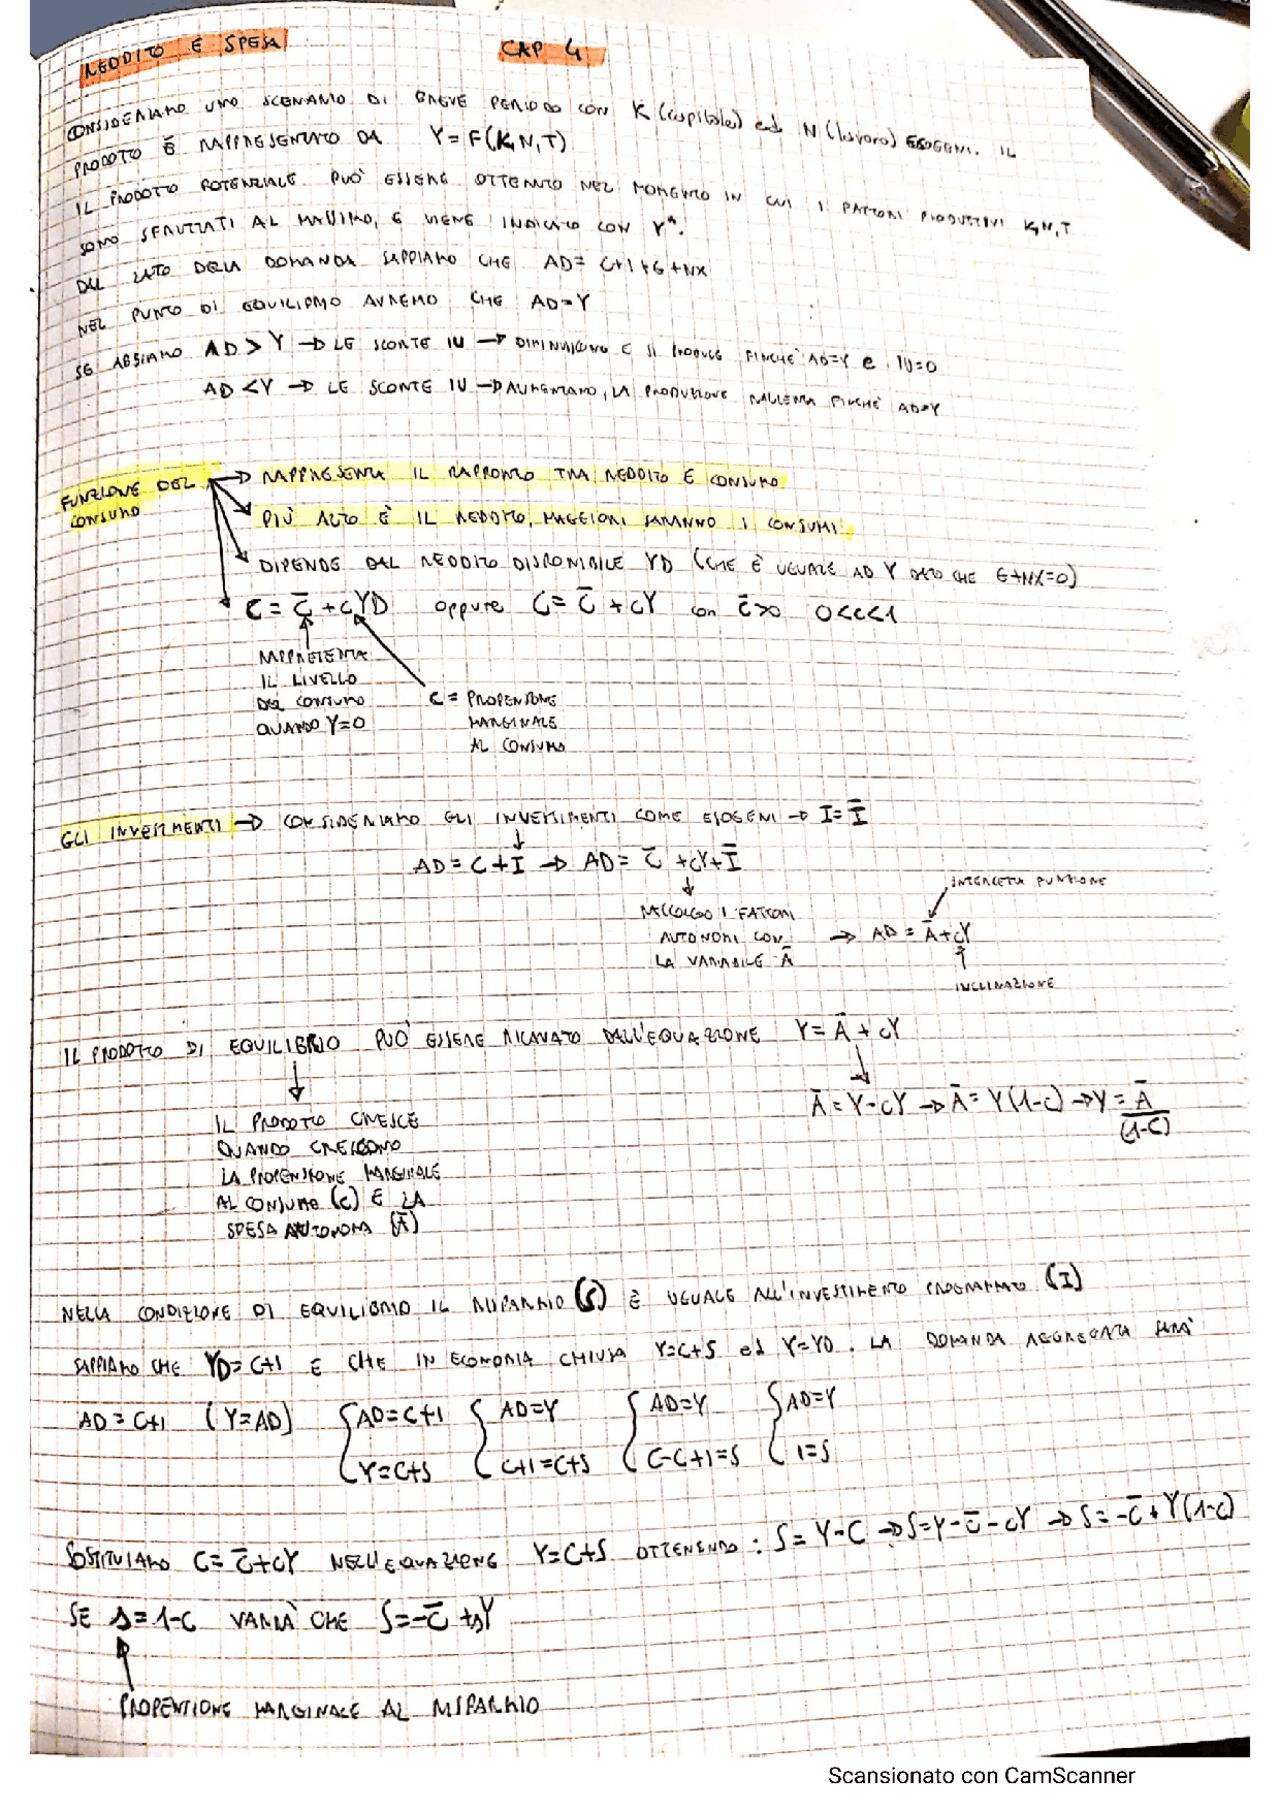 REDDITO E SPESA
CAP 4
CONSIDERIAMO UNO SCENARIO DI BREVE PERIODO CON K (capitale) ed N (lavoro) ESOGENI. IL
PRODOTTO È RAPPRESENTATO DA Y=F(K,N,T)
IL PRODOTTO POTENZIALE PUÒ ESSERE OTTENUTO NEL MOMENTO IN CUI I FATTORI PRODUTTIVI K,N,T
SONO SFRUTTATI AL MASSIMO, E VIENE INDICATO CON Y*.
DAL LATO DELLA DOMANDA SAPPIAMO CHE AD= C+I+G+NX
NEL PUNTO DI EQUILIBRIO AVREMO CHE AD=Y
SE ABBIAMO AD>Y → LE SCORTE IU → DIMINUISCONO E SI PRODUCE FINCHÈ AD=Y e IU=0
AD<Y → LE SCORTE IU → AUMENTANO, LA PRODUZIONE RALLENTA FINCHÈ AD=Y
FUNZIONE DEL CONSUMO
→ RAPPRESENTA IL RAPPORTO TRA REDDITO E CONSUMO
PIÙ ALTO È IL REDDITO, MAGGIORI SARANNO I CONSUMI
DIPENDE DAL REDDITO DISPONIBILE YD (CHE È UGUALE AD Y DATO CHE G+NX=0)
C = C̄ + cYD oppure C= C̄ + cY con C̄>0 0<c<1
RAPPRESENTA
IL LIVELLO
DEL CONSUMO
QUANDO Y=0
C = PROPENSIONE
MARGINALE
AL CONSUMO
GLI INVESTIMENTI → CONSIDERIAMO GLI INVESTIMENTI COME ESOGENI → I=Ī
AD = C+I → AD= C̄ +cY+Ī
RACCOLGO I FATTORI
AUTONOMI CON
LA VARIABILE Ā
→ AD = Ā+cY
INTERCETTA FUNZIONE
INCLINAZIONE
IL PRODOTTO DI EQUILIBRIO PUÒ ESSERE RICAVATO DALL'EQUAZIONE Y= Ā + cY
Ā = Y-cY → Ā = Y(1-C) → Y = Ā/(1-C)
IL PRODOTTO CRESCE
QUANDO CRESCONO
LA PROPENSIONE MARGINALE
AL CONSUMO (C) E LA
SPESA AUTONOMA (Ā)
NELLA CONDIZIONE DI EQUILIBRIO IL RISPARMIO (S) È UGUALE ALL'INVESTIMENTO PROGRAMMATO (I)
SAPPIAMO CHE YD=C+I E CHE IN ECONOMIA CHIUSA Y=C+S ed Y=YD. LA DOMANDA AGGREGATA SARÀ
AD = C+I (Y=AD) {AD=C+I {AD=Y {AD=Y {AD=Y
Y=C+S C+I=C+S C-C+I=S I=S
SOSTITUIAMO C=C̄+cY NELL'EQUAZIONE Y=C+S OTTENENDO: S=Y-C → S=Y-C̄-cY → S=-C̄+Y(1-C)
SE s=1-C VARRÀ CHE S=-C̄+sY
PROPENTIONE MARGINALE AL RISPARMIO
Scansionato con CamScanner